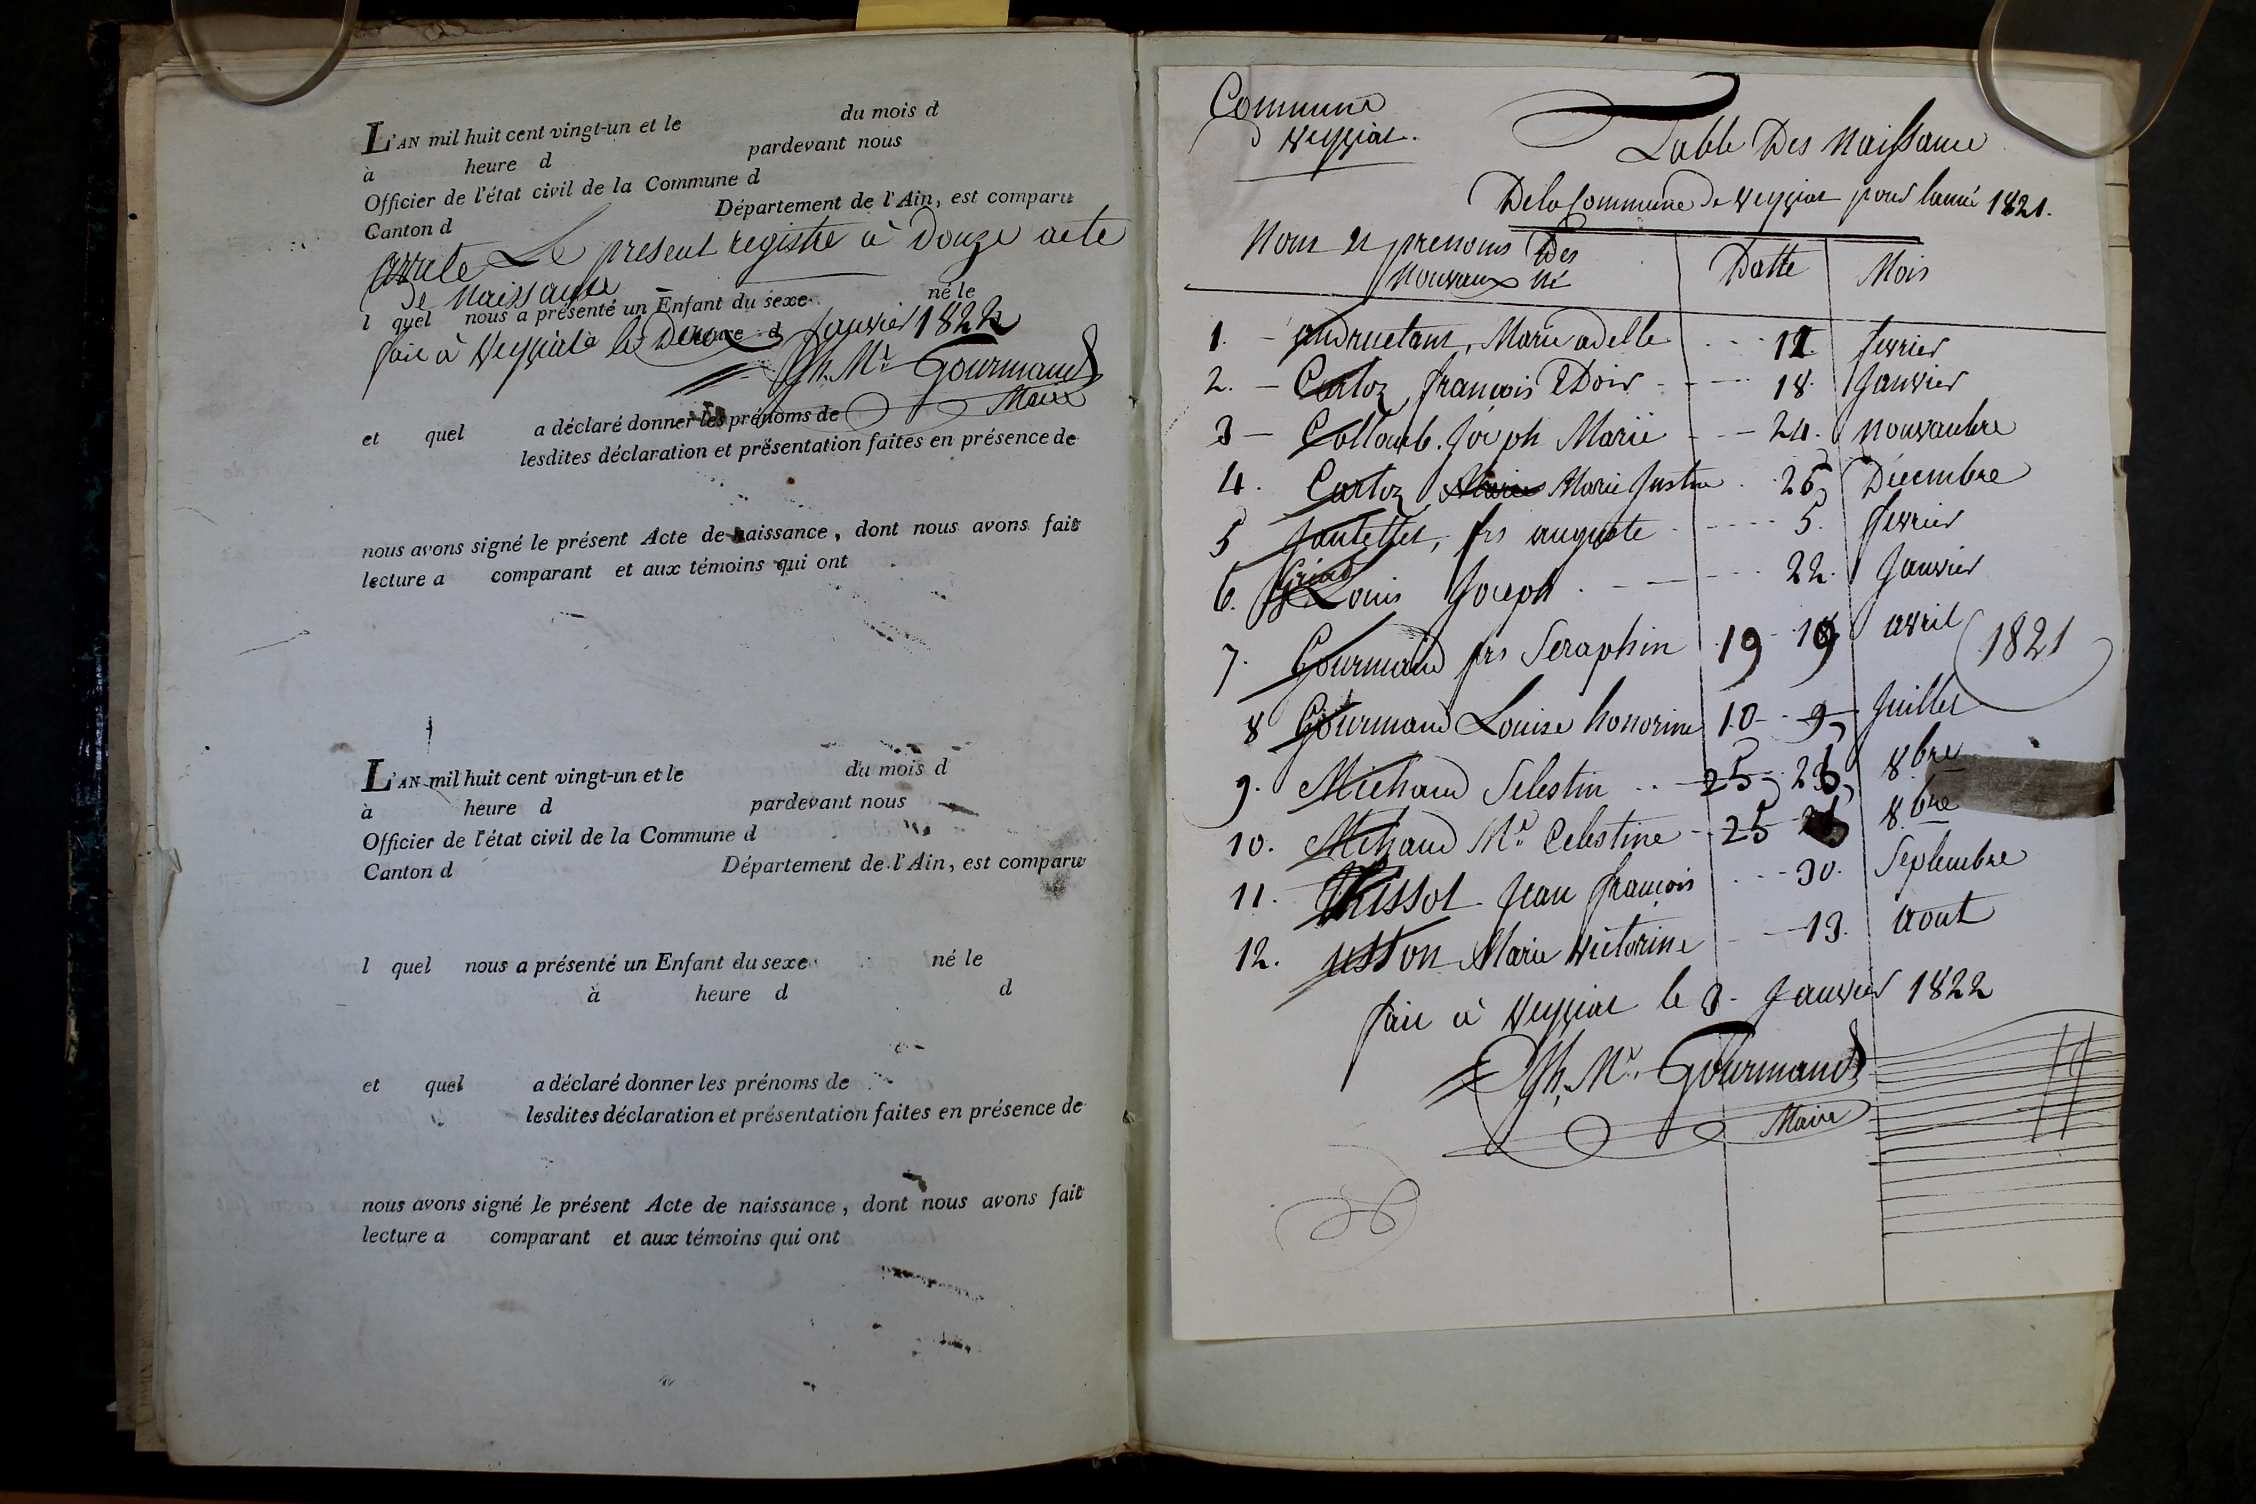 L'AN mil huit cent vingt-un et le du mois d
à heure d pardevant nous
Officier de l'état civil de la Commune d
Canton d Département de l'Ain, est comparu
arrete Le present registre à Douze acte
de Naissance
l quel nous a présenté un Enfant du sexe né le
à heure d
fait à Veyziat le Deux Janvier 1822
Jh. Mie Gourmand
Maire
et quel a déclaré donner les prénoms de
lesdites déclaration et présentation faites en présence de
nous avons signé le présent Acte de naissance, dont nous avons fait
lecture a comparant et aux témoins qui ont
L'AN mil huit cent vingt-un et le du mois d
à heure d pardevant nous
Officier de l'état civil de la Commune d
Canton d Département de l'Ain, est comparu
l quel nous a présenté un Enfant du sexe né le
à heure d d
et quel a déclaré donner les prénoms de
lesdites déclaration et présentation faites en présence de
nous avons signé le présent Acte de naissance, dont nous avons fait
lecture a comparant et aux témoins qui ont
Commune
d Veyziat.
Table Des Naissance
De la Commune de Veyziat pour lanné 1821.
Nom et prenoms Des
Nouveaux né
Datte Mois
1. Marie adelle 12. fevrier
2. Cartoz françois 18. Janvier
3 Collomb. Joseph Marie 24. Nouvanbre
4. Cartoz Marie Marie Justine 26 Décembre
5 Jantellet, frs auguste 5. fevrier
6. Louis Joseph 22. Janvier
7. Gourmand frs Seraphin 19 19 avril
1821
8 Gourmand Louise honorine 10 9 Juillet
9. Michaud Selestin 25 8bre
10. Michaud Me. Celestine 25 8bre
11. Jean françois 30. Septembre
12. Marie Victorine 13. aout
fait à Veyziat le 3 Janvier 1822
Jh. Mie. Gourmand
Maire